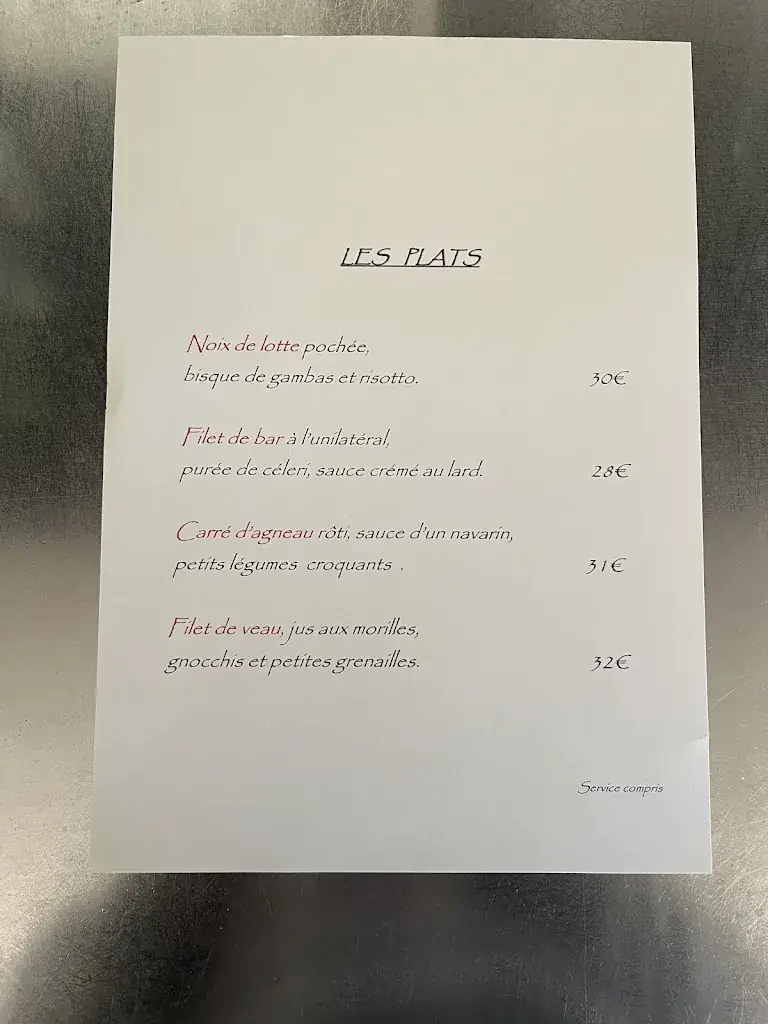 LES PLATS
Noix de lotte pochée,
bisque de gambas et risotto. 30€
Filet de bar à l'unilatéral,
purée de céleri, sauce crémé au lard. 28€
Carré d'agneau rôti, sauce d'un navarin,
petits légumes croquants . 31€
Filet de veau, jus aux morilles,
gnocchis et petites grenailles. 32€
Service compris